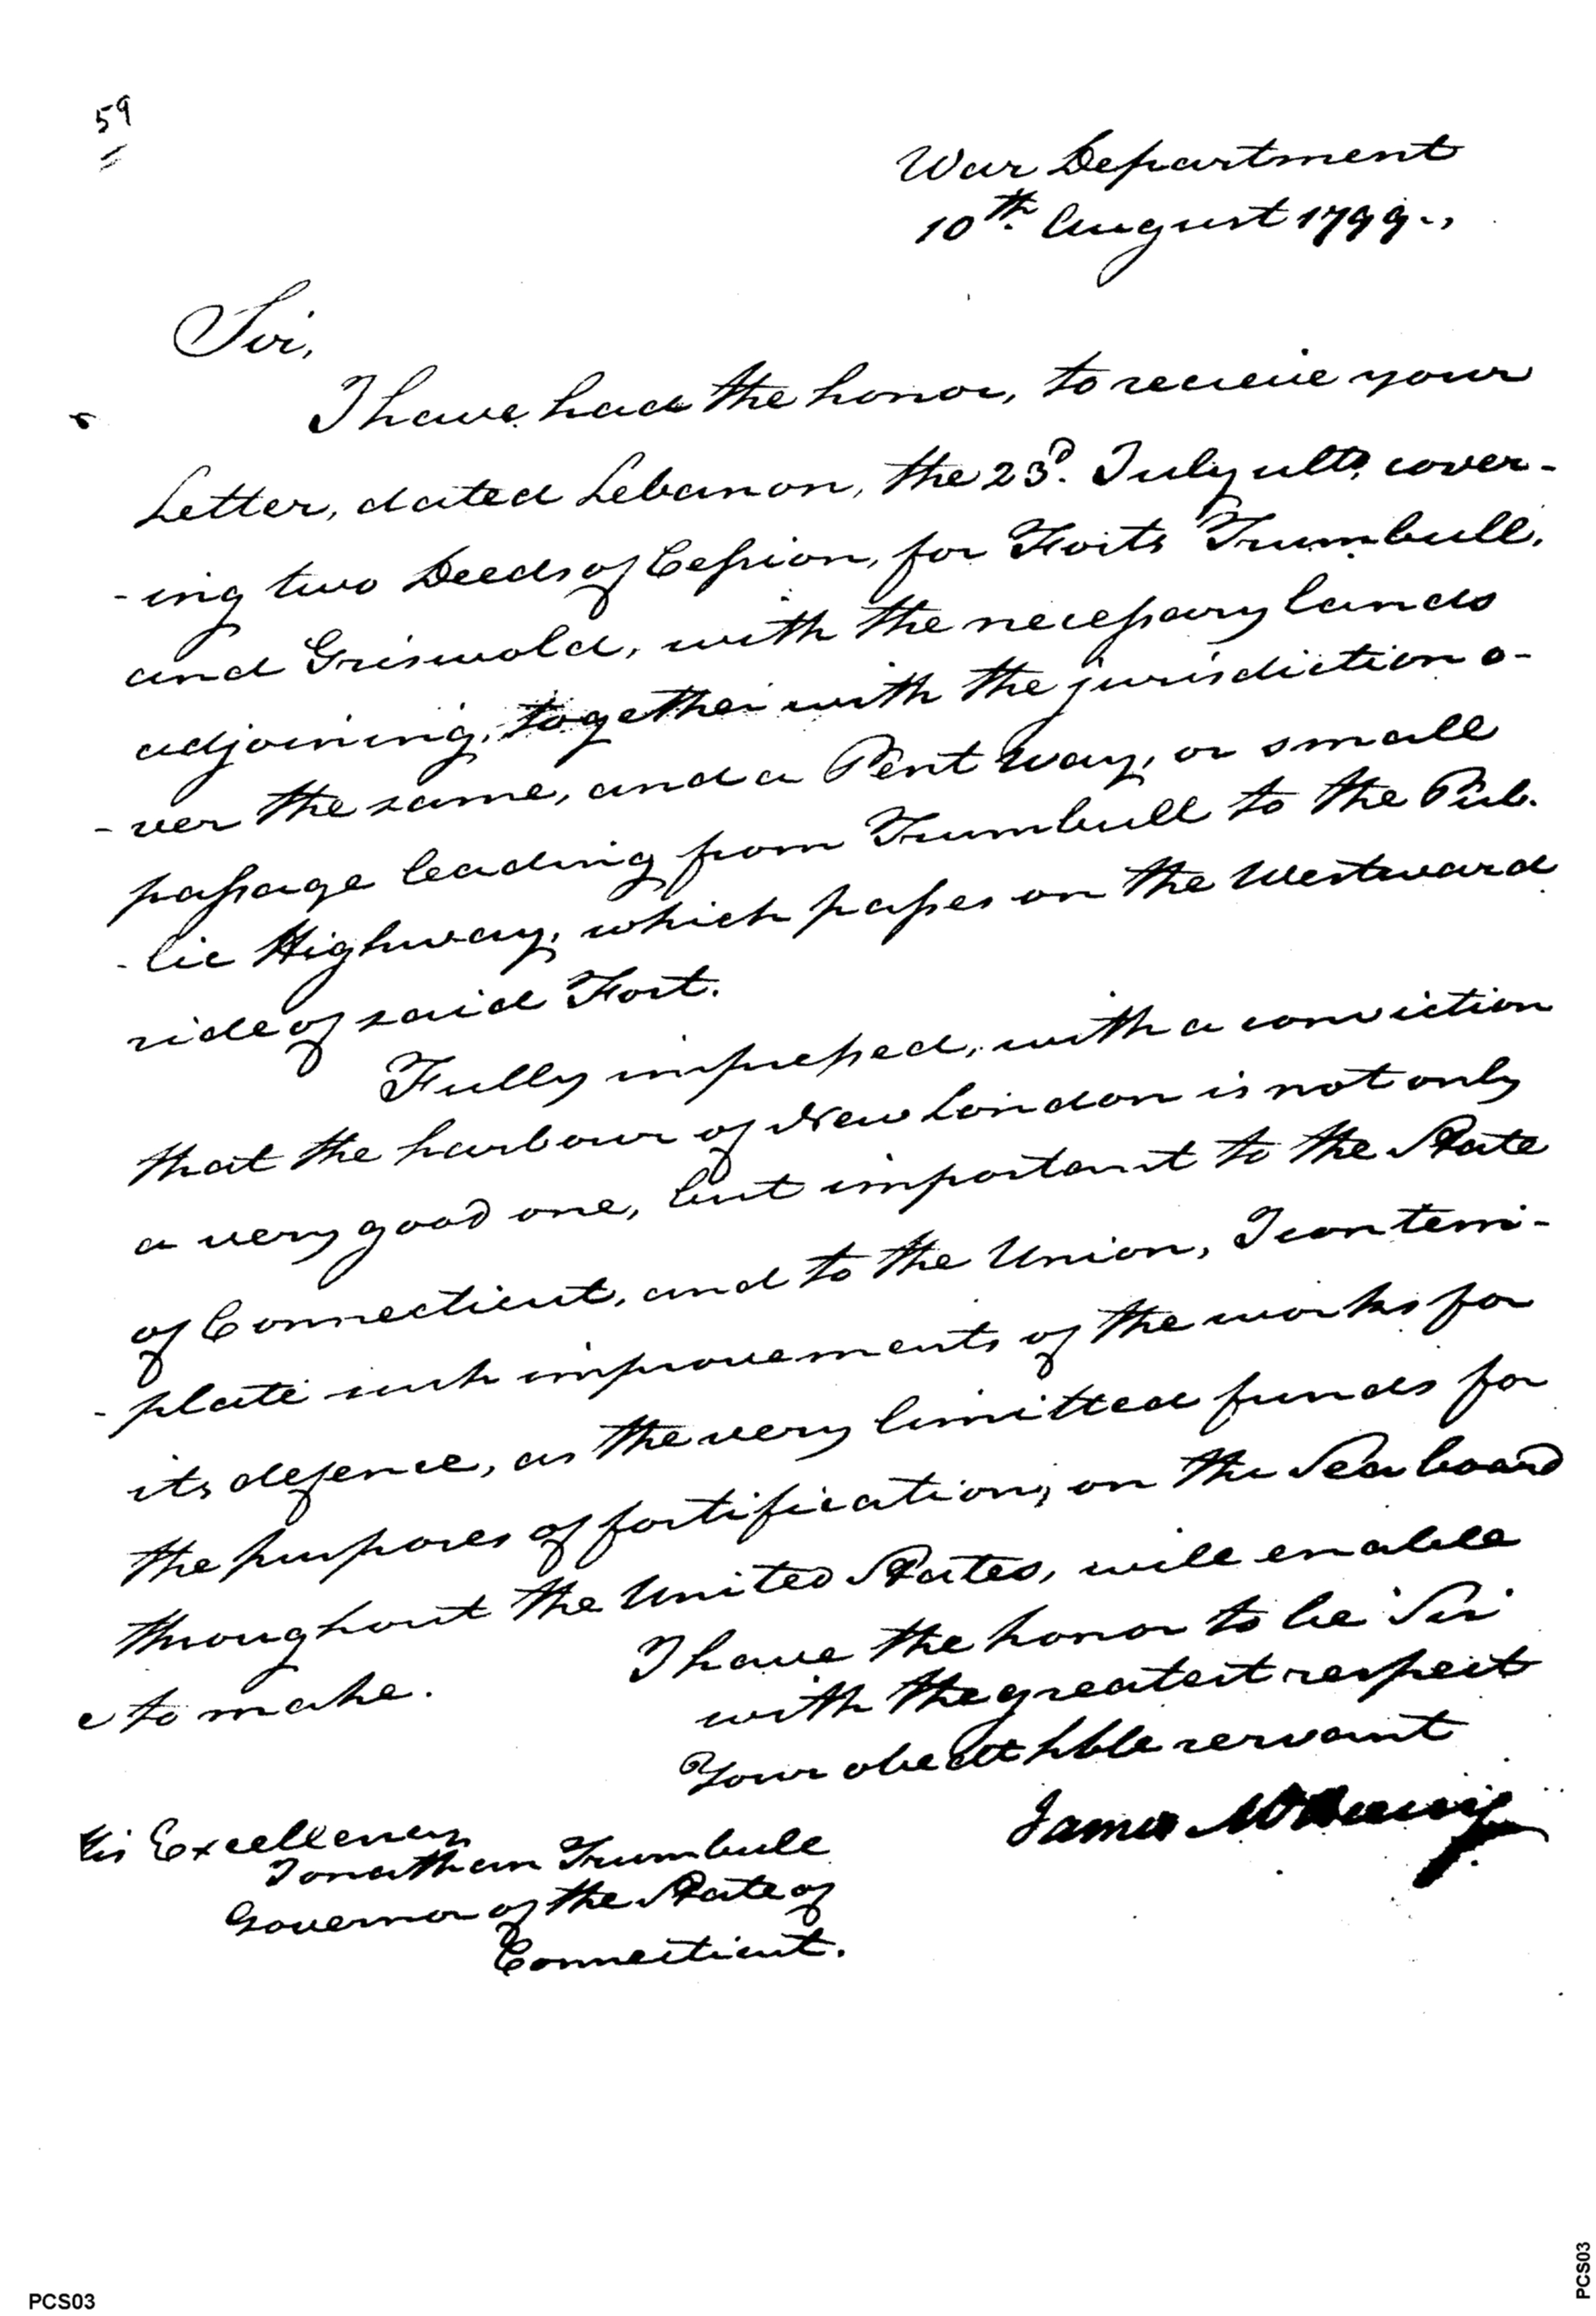 59
War Department
10th. August 1799.,
Sir,
I have had the honor, to receive your
Letter, dated Lebanon, the 23d. July ulto, cover-
-ing two Deeds of Cession, for Forts Trumbull,
and Griswold, with the necessary lands
adjoining, together with the jurisdiction o-
-ver the same, and a Pent way, or small
passage leading from Trumbull to the Pub-
-lic Highway, which passes on the Westward
side of said Fort.
Fully impressed, with a conviction
that the harbour of New London is not only
a very good one, but important to the State
of Connecticut, and to the Union, I contem-
-plate such improvements of the works for
its defence, as the very limitted funds for
the purposes of fortification, on the Sea board
throughout the United States, will enable
e to make.
I have the honor to be Sir
with the greatest respect
Your obedt hble servant
James McHenry
His Excellency
Jonathan Trumbull
Governor of the State of
Connecticut.
PCS03
PCS03